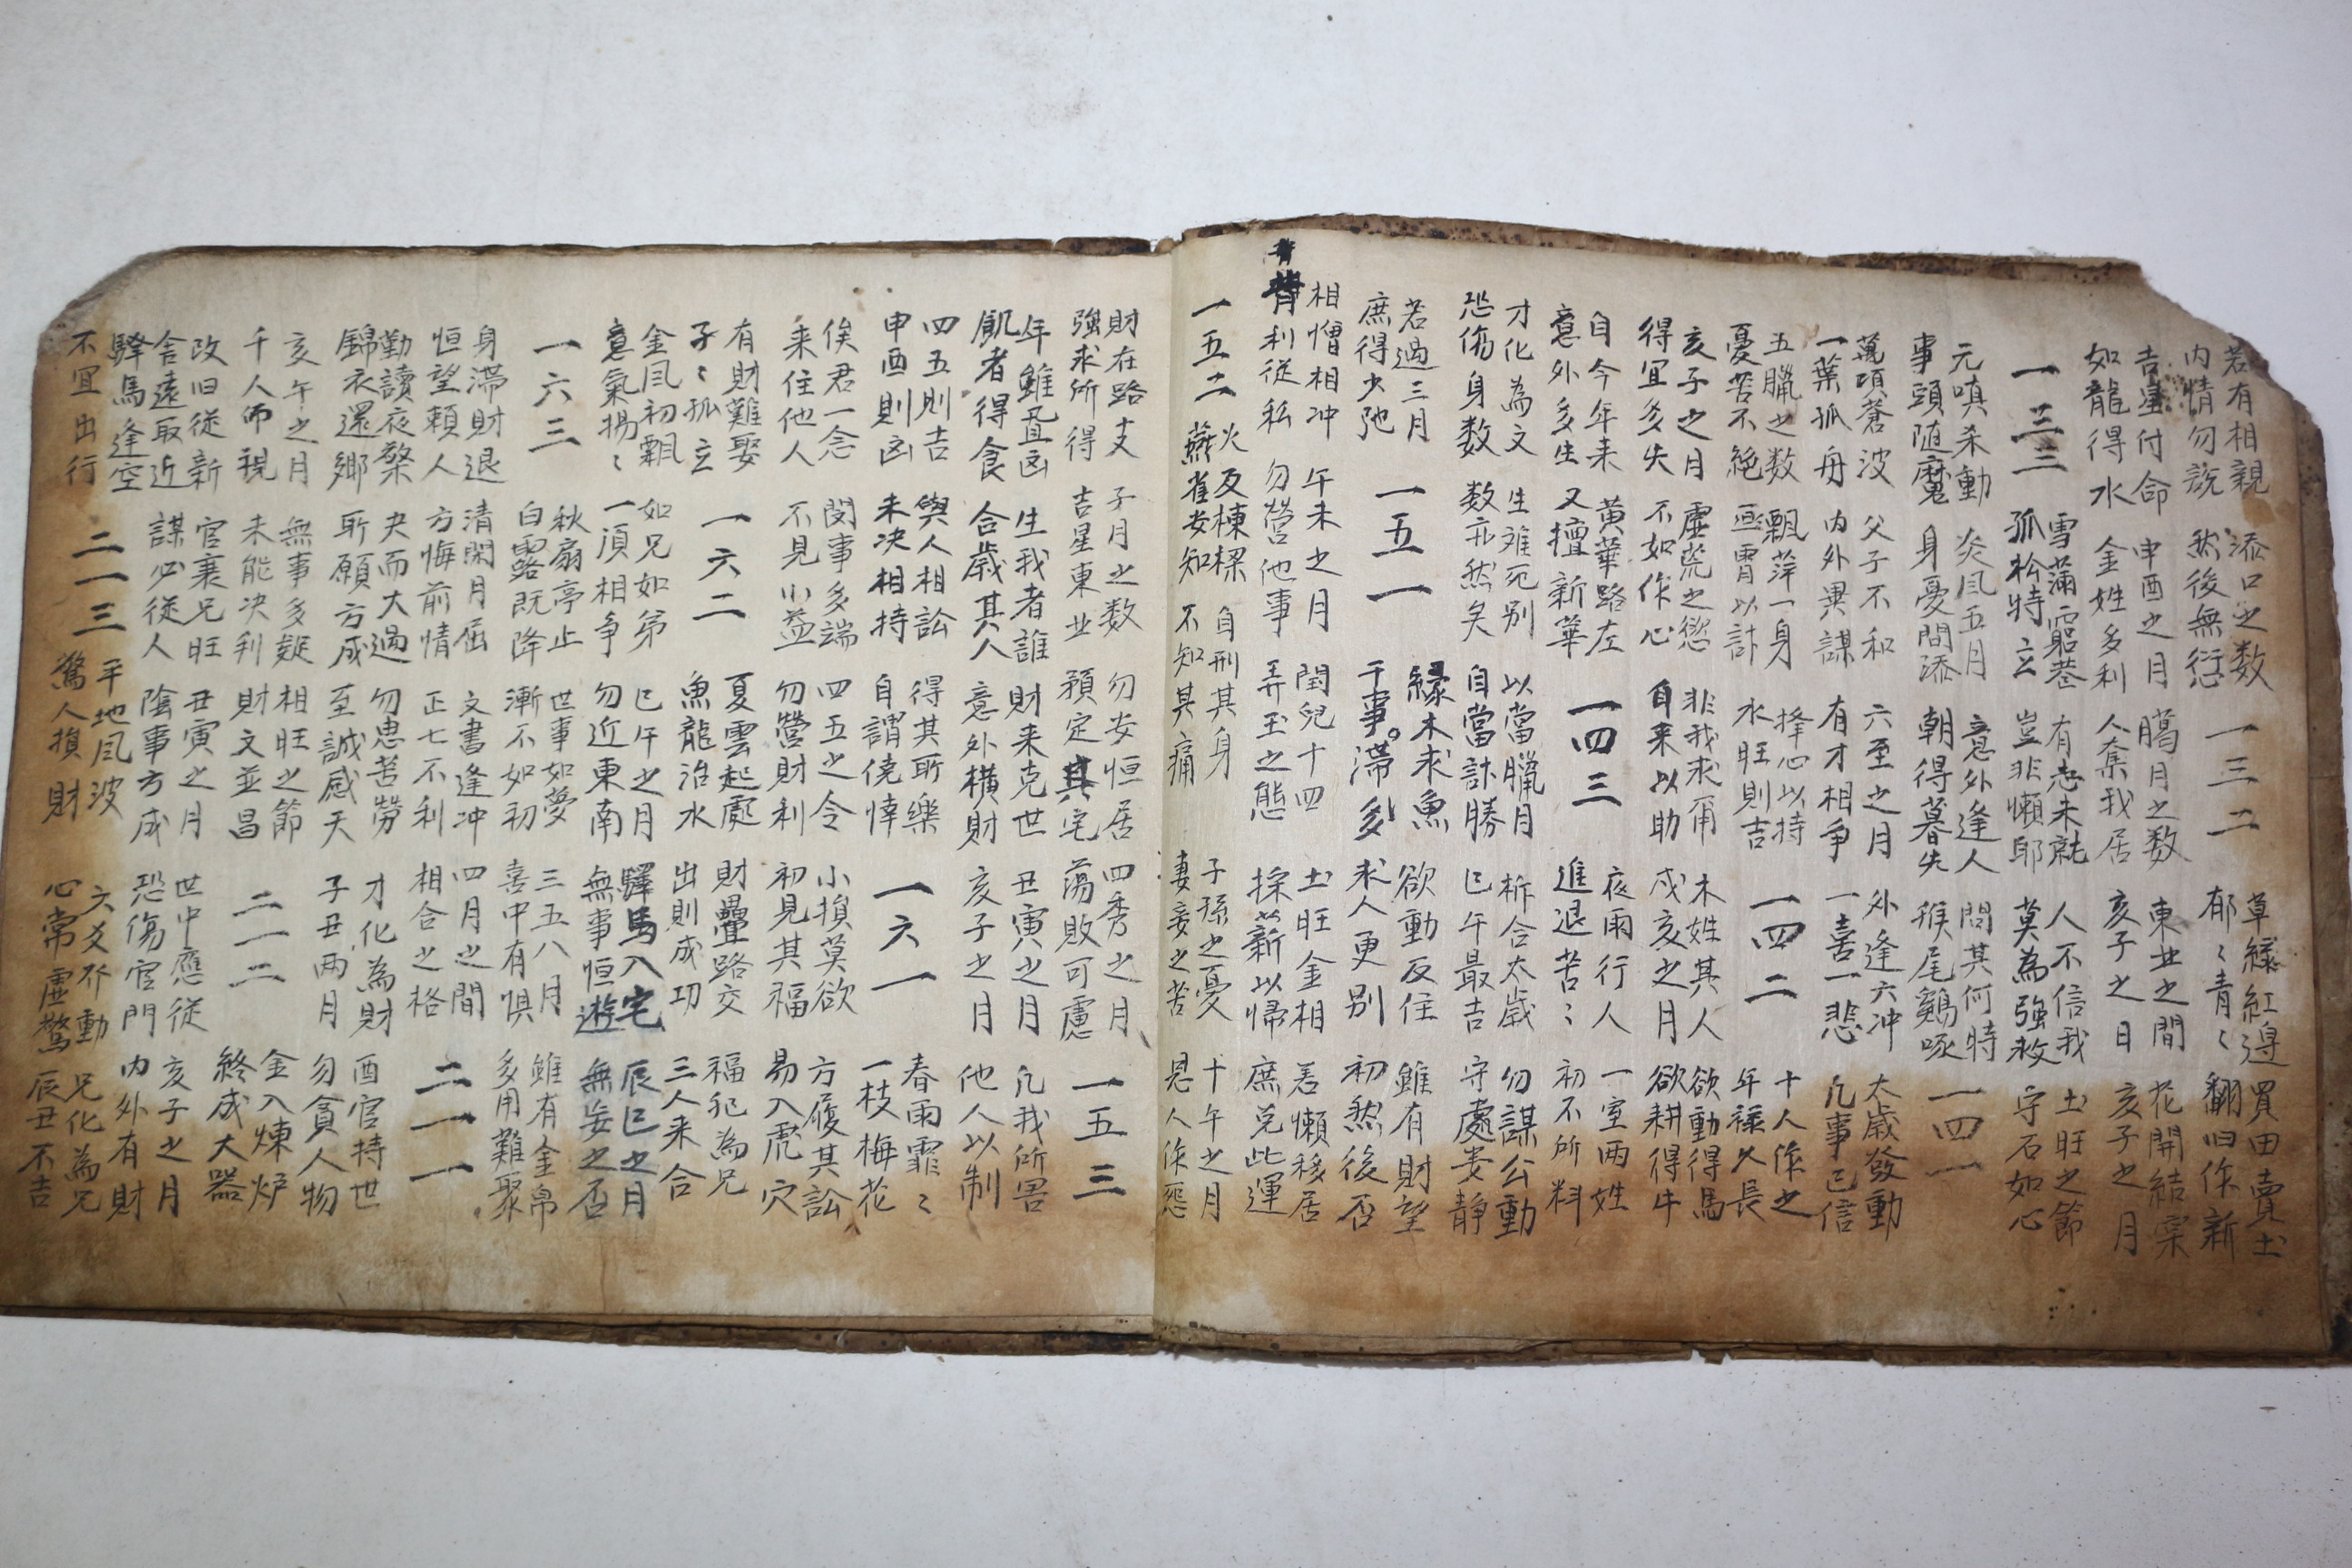 若有相親
内情勿說
添口之数
然後無愆
一三二
草緑紅邉
郁〻青〻
買田賣土
翻旧作新
吉星付命
如龍得水
申酉之月
金姓多利
臈月之数
人奪我居
東北之間
亥子之日
花開結宲
亥子之月
一三三
雪滿窮巷
孤松特立
有志未就
豈非懶耶
人不信我
莫為強救
土旺之節
守石如心
元嗔杀動
事頭随魔
炎風五月
身憂間添
意外逢人
朝得暮失
問其何時
猴尾鷄啄
一四一
萬頃蒼波
一葉孤舟
父子不和
内外異謀
六至之月
有才相争
外逢六冲
一喜一悲
太歲發動
凡事已信
五臘之数
憂苦不絶
飄萍一身
宵以計
心以持
水旺則吉
一四二
十人作之
年禄久長
亥子之月
得宜多失
虛荒之慾
不如作心
非我求
自来以助
木姓其人
戌亥之月
欲動得馬
欲耕得牛
自今年来
意外多生
黄華路左
又擅新華
一四三
夜雨行人
進退苦〻
一室两姓
初不所料
才化為文
恐傷身数
生难死别
数亦然矣
以當臘月
自當計勝
柝合太歲
巳午最吉
勿謀公動
守處娄静
若過三月
庶得少弛
一五一
縁木求魚
干事滞多
欲動反住
求人更别
雖有財望
初然後否
相憎相冲
背利従私
午未之月
勿營他事
閏兒十四
弄玉之態
土旺金相
採薪以帰
若懶移居
庶免此運
一五二
火反棟樑
燕雀安知
自刑其身
不知其痛
子孫之憂
妻妾之苦
十午之月
恩人作怨
財在路支
強求所得
子月之数
吉星東北
勿安恒居
預定其宅
四秀之月
蕩敗可慮
一五三
年雖凶
飢者得食
生我者誰
合歲其人
財来克世
意外横財
丑寅之月
亥子之月
凡我所
他人以制
四五則吉
申酉則凶
與人相訟
未决相持
得其所樂
自謂僥悻
一六一
春雨霏〻
一枝梅花
俟君一念
来住他人
閔事多端
不見小益
四五之令
勿營財利
小損莫欲
初見其福
方履其訟
易入虎穴
有財難娶
孑〻孤立
一六二
夏雲起處
魚龍治水
財疊路交
出則成功
福犯為兄
三人来合
金風初飄
意氣揚〻
如兄如弟
一頃相争
巳午之月
勿近東南
驛馬入宅
無事恒遊
辰巳之月
無妄之否
一六三
秋扇亭止
白露既降
世事如夢
漸不如初
三五八月
喜中有惧
雖有金帛
多用難聚
身滞財退
恒望頼人
清閑月屈
方悔前情
文書逢冲
正七不利
四月之間
相合之格
二一一
勤讀夜檠
錦衣還鄉
夬而大過
所願方成
勿患苦勞
至誠感天
才化為財
子丑两月
酉官持世
勿貪人物
亥午之月
千人帀視
無事多疑
未能决利
相旺之節
財文並昌
二一二
金入煉炉
終成大器
改旧従新
舍遠取近
官衰兄旺
謀必従人
丑寅之月
陰事方成
世中應従
恐傷官門
亥子之月
内外有財
驛馬逢空
不宜出行
二一三
平地風波
驚人損財
六爻乔動
心常虛驚
兄化為兄
辰丑不吉